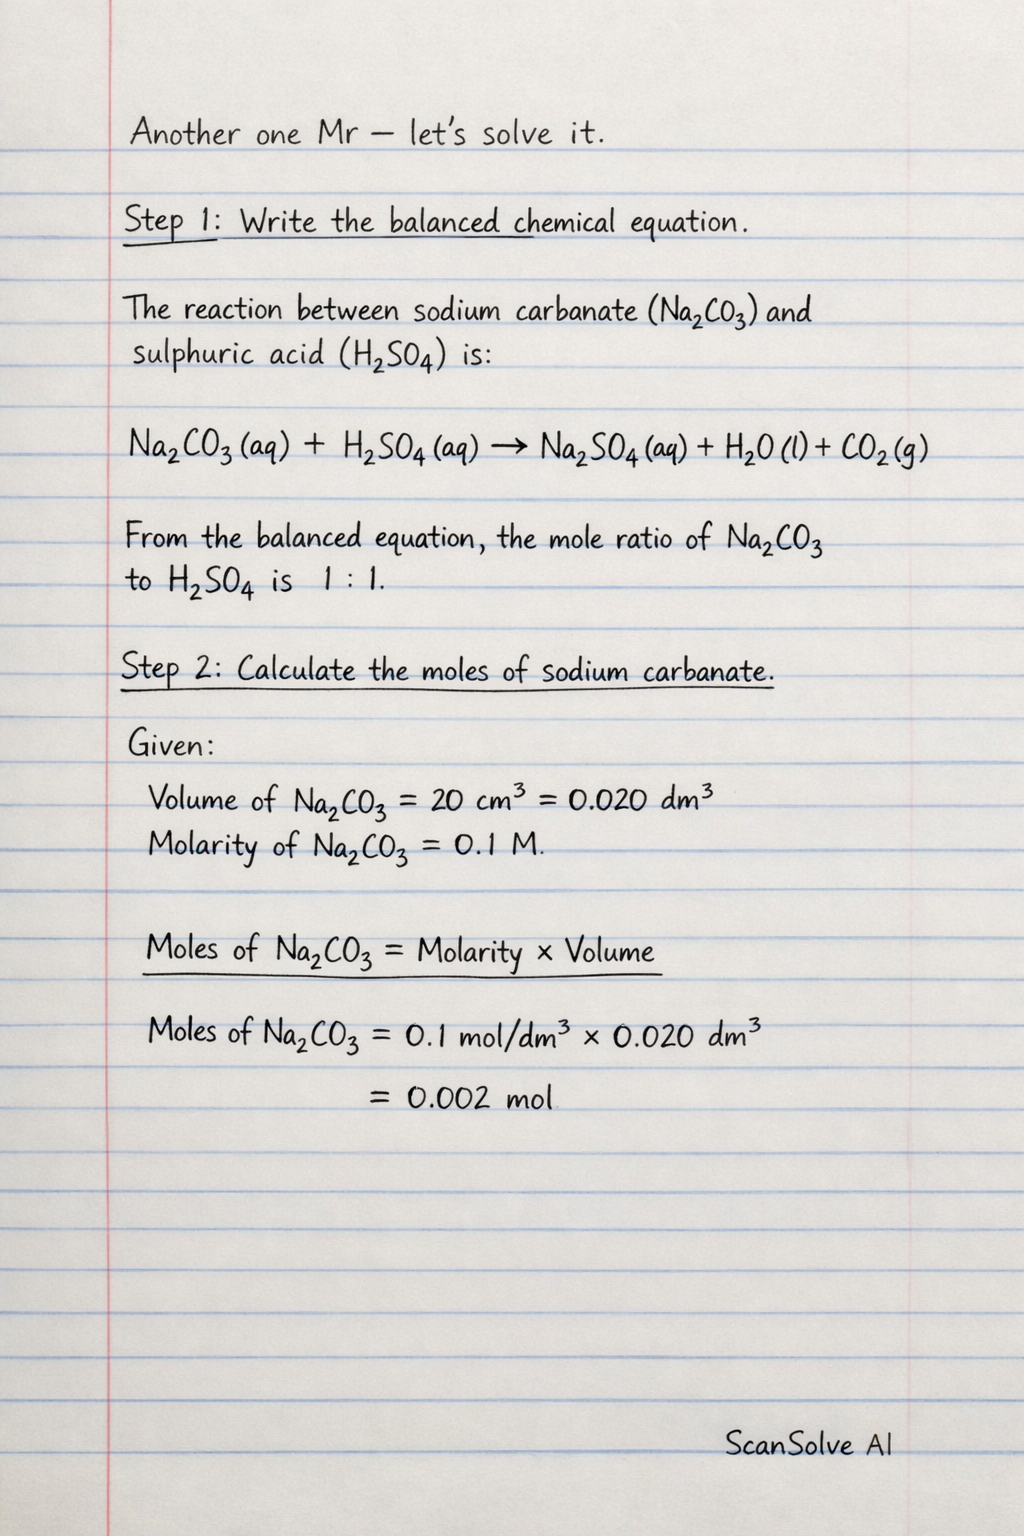 Another one Mr — let's solve it.
Step 1: Write the balanced chemical equation.
The reaction between sodium carbanate (Na₂CO₃) and
sulphuric acid (H₂SO₄) is:
Na₂CO₃ (aq) + H₂SO₄ (aq) → Na₂SO₄ (aq) + H₂O (l) + CO₂ (g)
From the balanced equation, the mole ratio of Na₂CO₃
to H₂SO₄ is 1 : 1.
Step 2: Calculate the moles of sodium carbanate.
Given:
Volume of Na₂CO₃ = 20 cm³ = 0.020 dm³
Molarity of Na₂CO₃ = 0.1 M.
Moles of Na₂CO₃ = Molarity × Volume
Moles of Na₂CO₃ = 0.1 mol/dm³ × 0.020 dm³
= 0.002 mol
ScanSolve AI